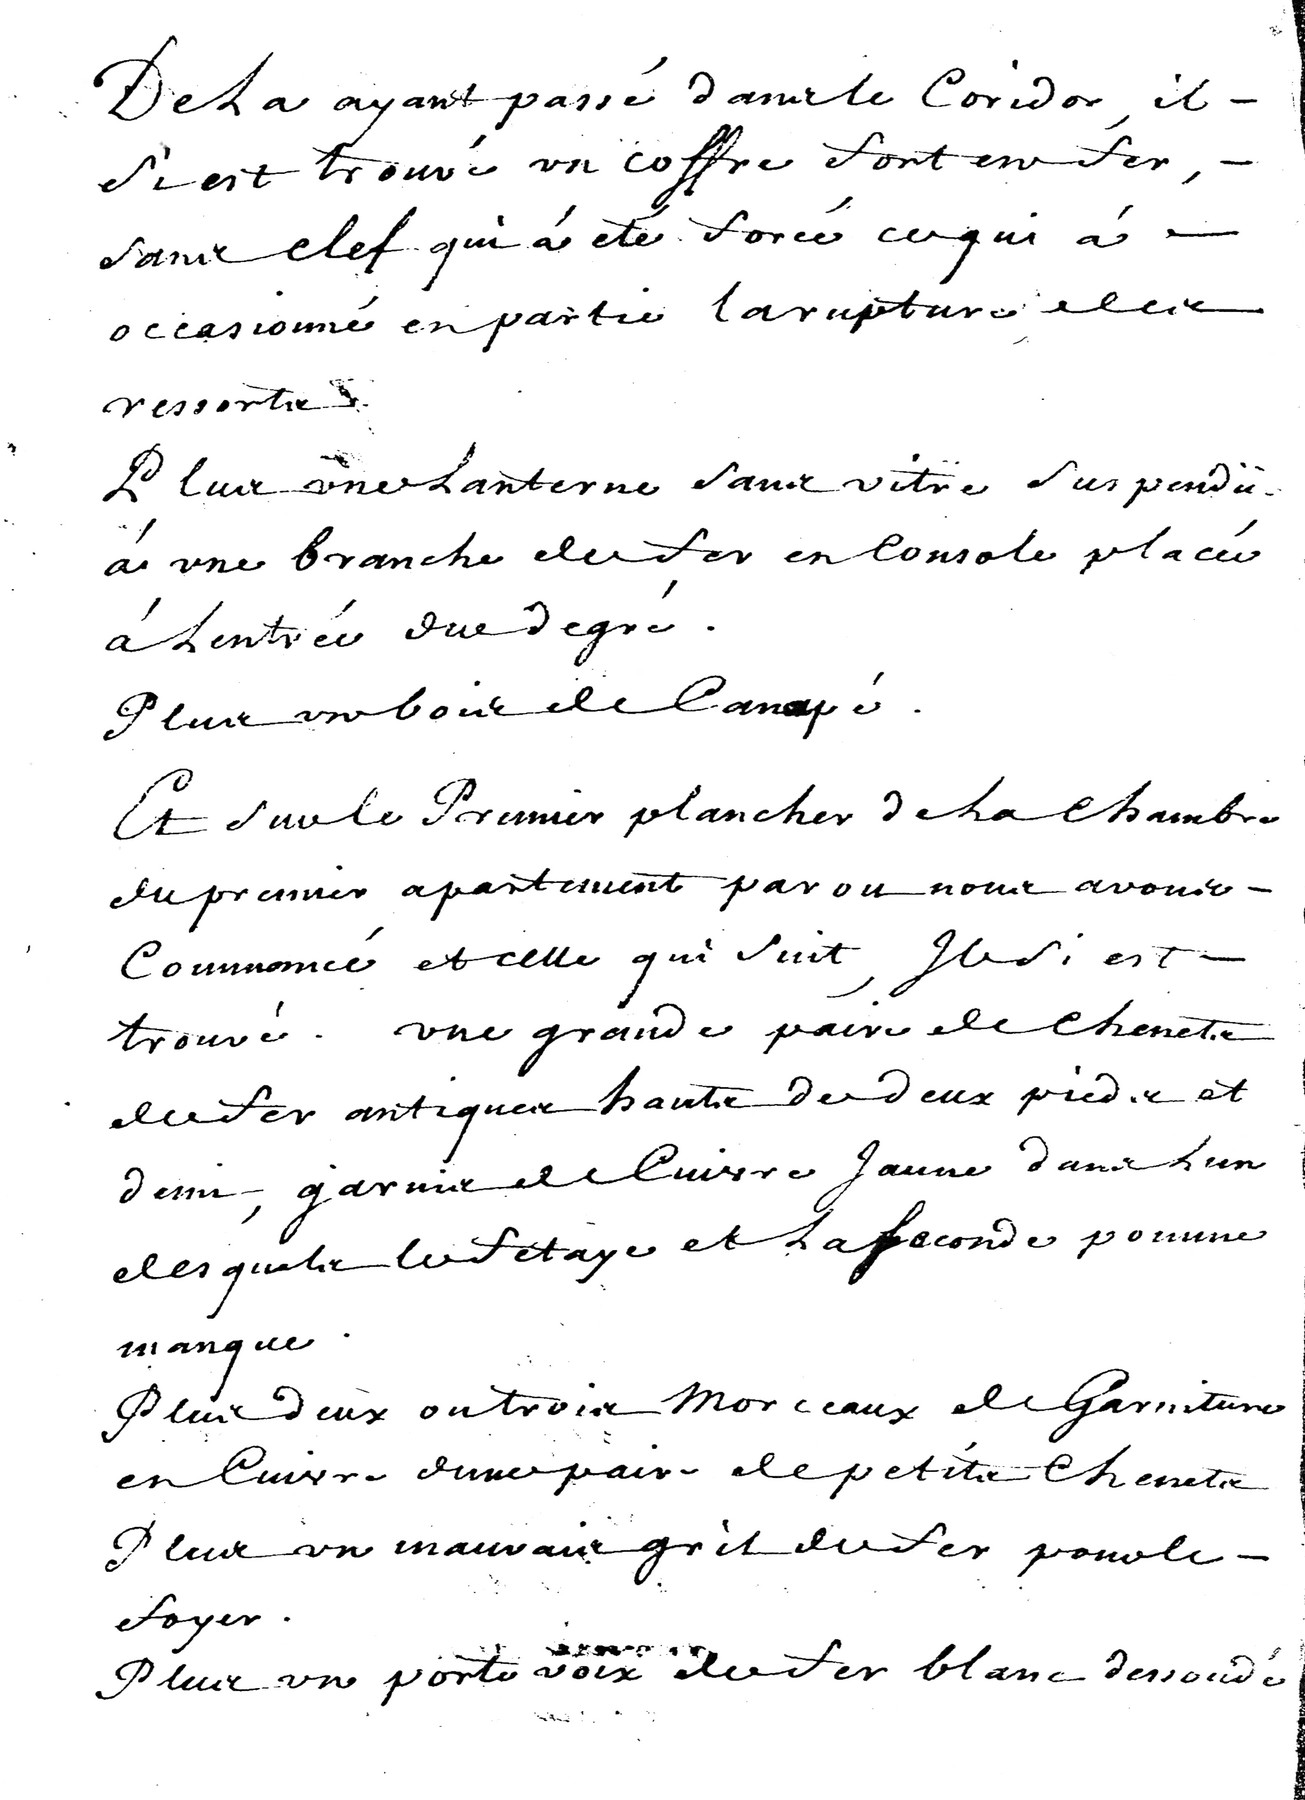 De La ayant passé dans le Coridor, il -
s'i est trouvé un coffre fort en fer, -
sans clef qui á eté forcé ce qui á -
occasionné en partie la rupture des
ressorts
Plus une Lanterne sans vitre suspendü
á une branche de fer en Console placée
á Lentrée du degré.
Plus un bois de Canapé.
Et sur le Premier plancher de La Chambre
du premier apartement par ou nous avons -
Commancé et celle qui suit, Il s'i est -
trouvé. une grande paire de Chenets
de fer antiques hauts de deux pieds et
demi -, garnis de Cuivre Jaune dans Lun
desquels le fetage et La seconde pomme
manque.
Plus deux ou trois Morceaux de Garniture
en Cuivre dune paire de petits Chenets
Plus un mauvais gril de fer pour le -
foyer.
Plus un porte voix de fer blanc dessoudé